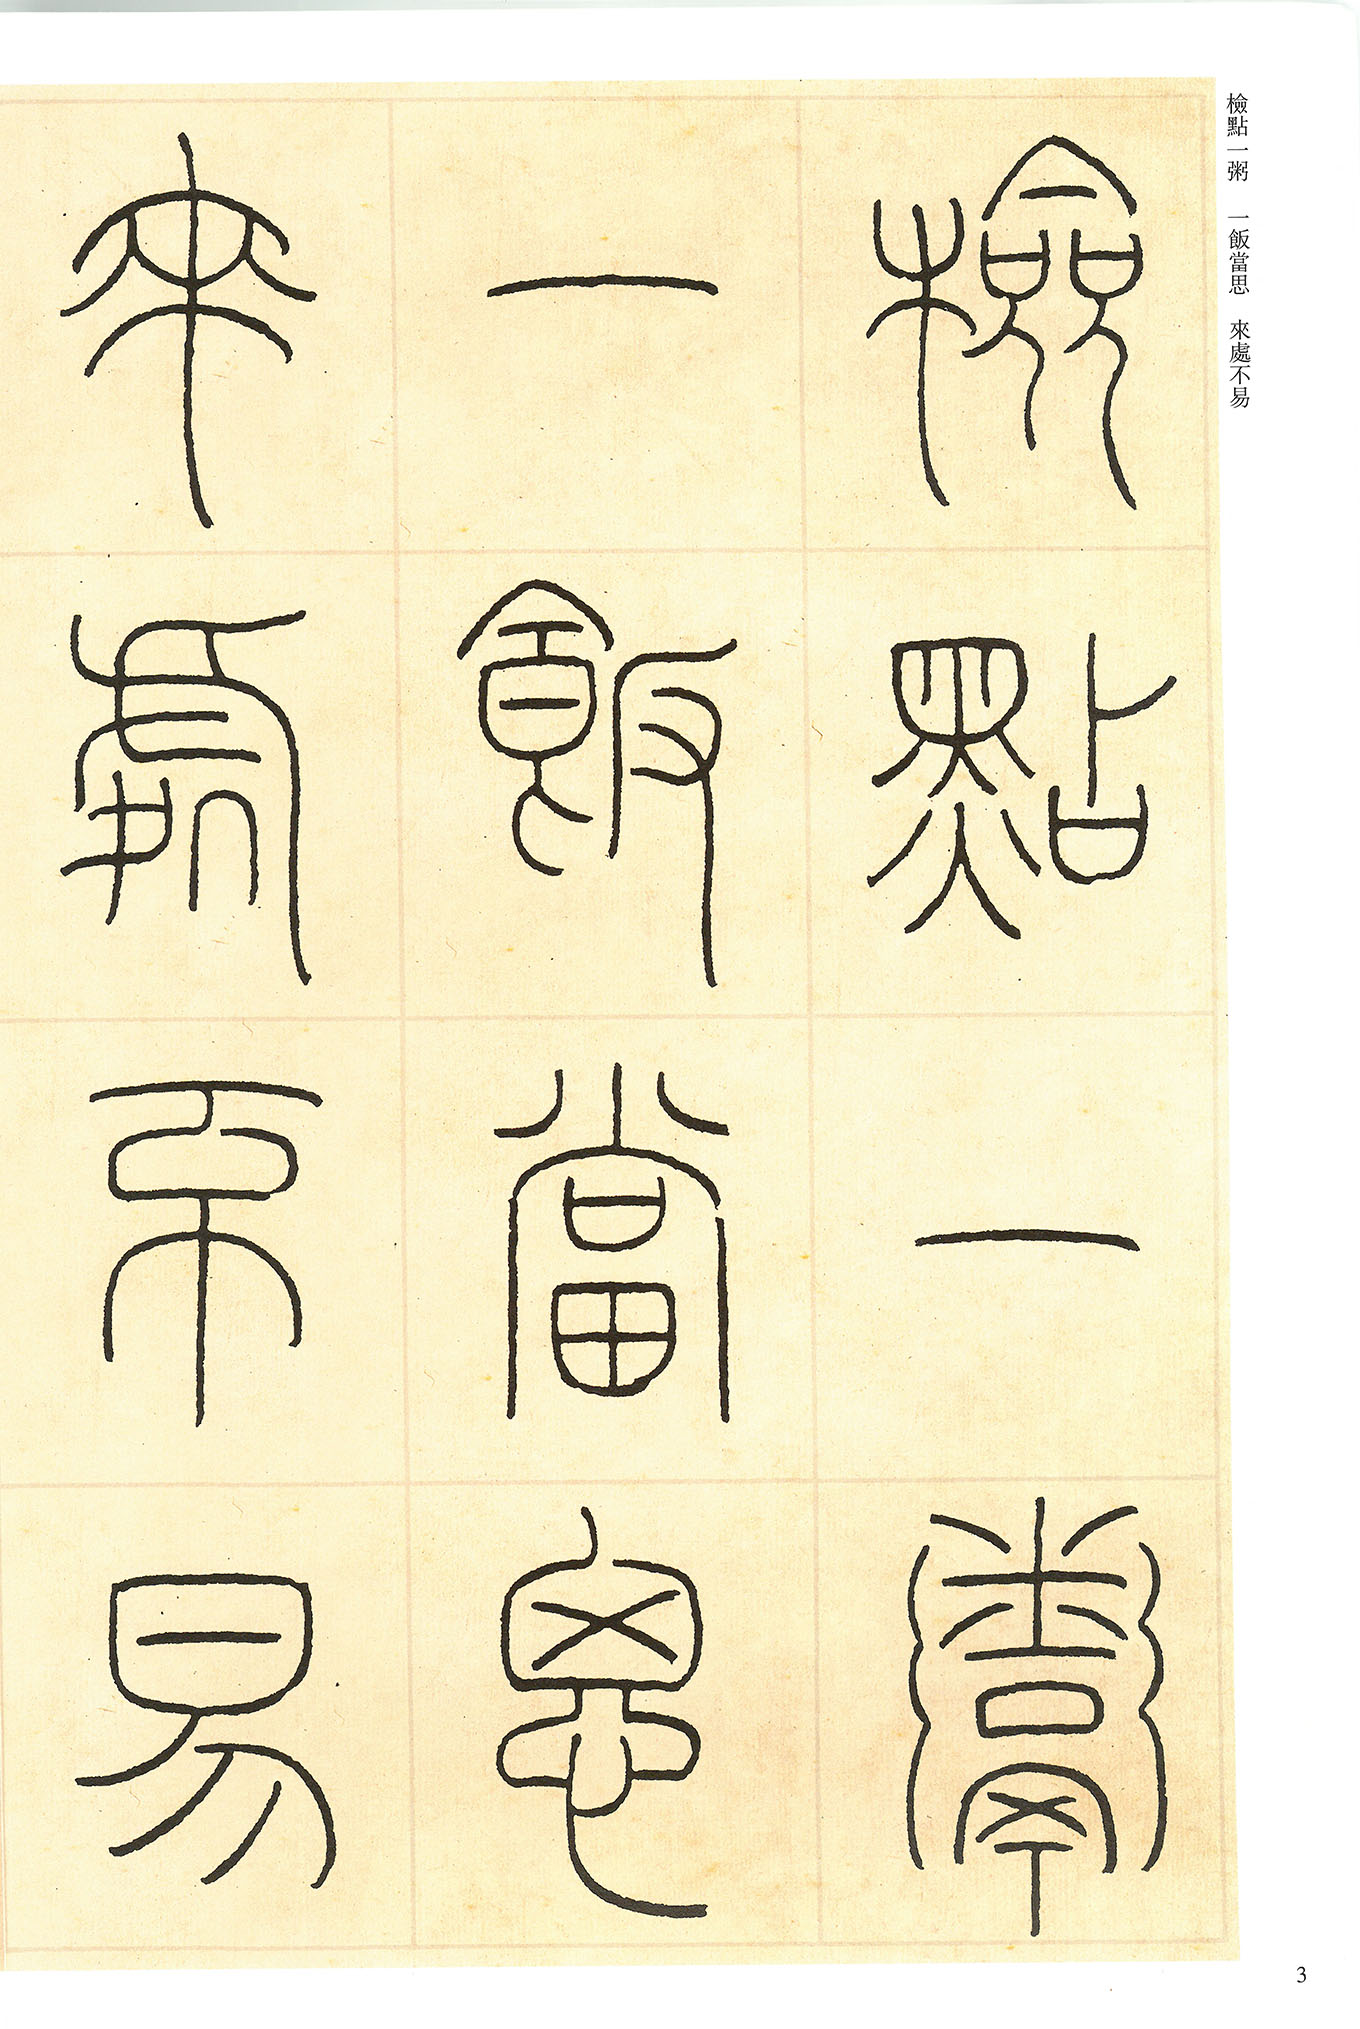 檢點一粥
一飯當思
來處不易
檢點一粥 一飯當思 來處不易
3